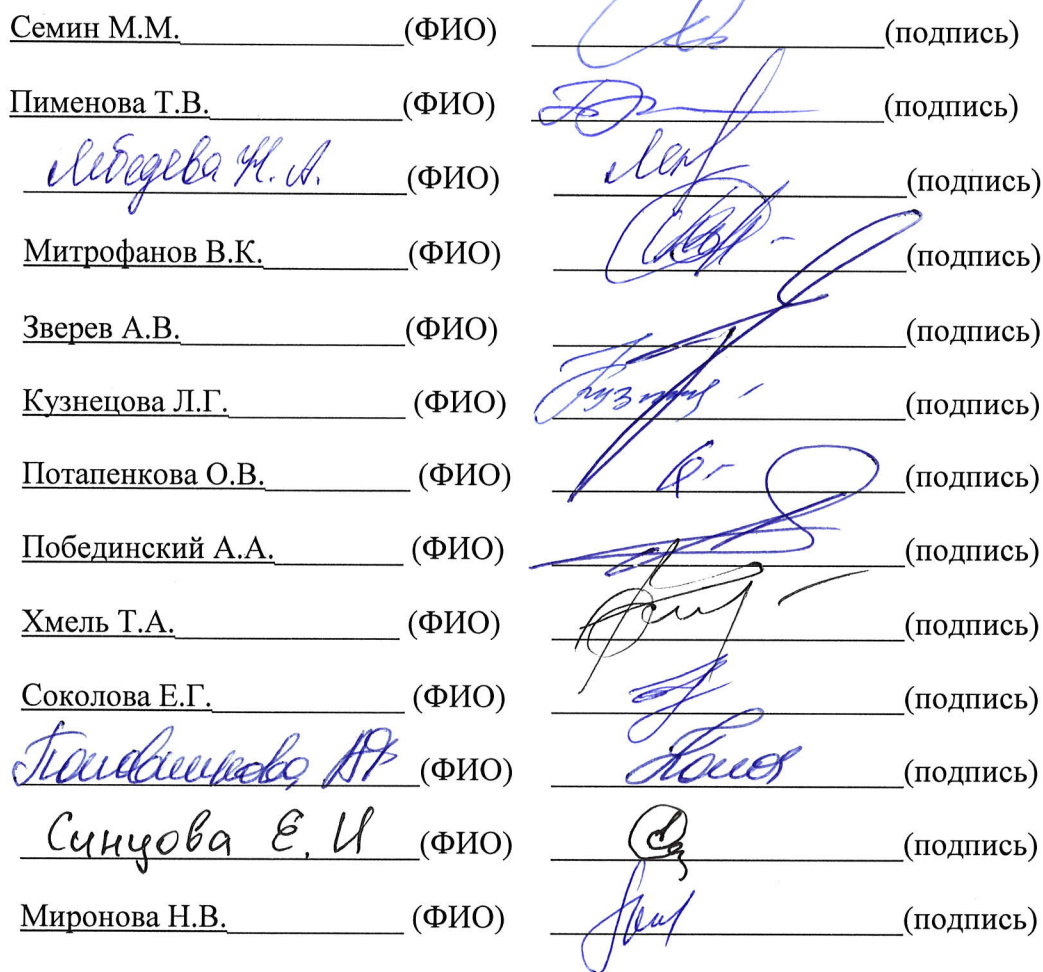 Семин М.М. (ФИО) (подпись)
Пименова Т.В. (ФИО) (подпись)
Лебедева Н.А. (ФИО) (подпись)
Митрофанов В.К. (ФИО) (подпись)
Зверев А.В. (ФИО) (подпись)
Кузнецова Л.Г. (ФИО) (подпись)
Потапенкова О.В. (ФИО) (подпись)
Побединский А.А. (ФИО) (подпись)
Хмель Т.А. (ФИО) (подпись)
Соколова Е.Г. (ФИО) (подпись)
(ФИО) (подпись)
Синцова Е.И (ФИО) (подпись)
Миронова Н.В. (ФИО) (подпись)